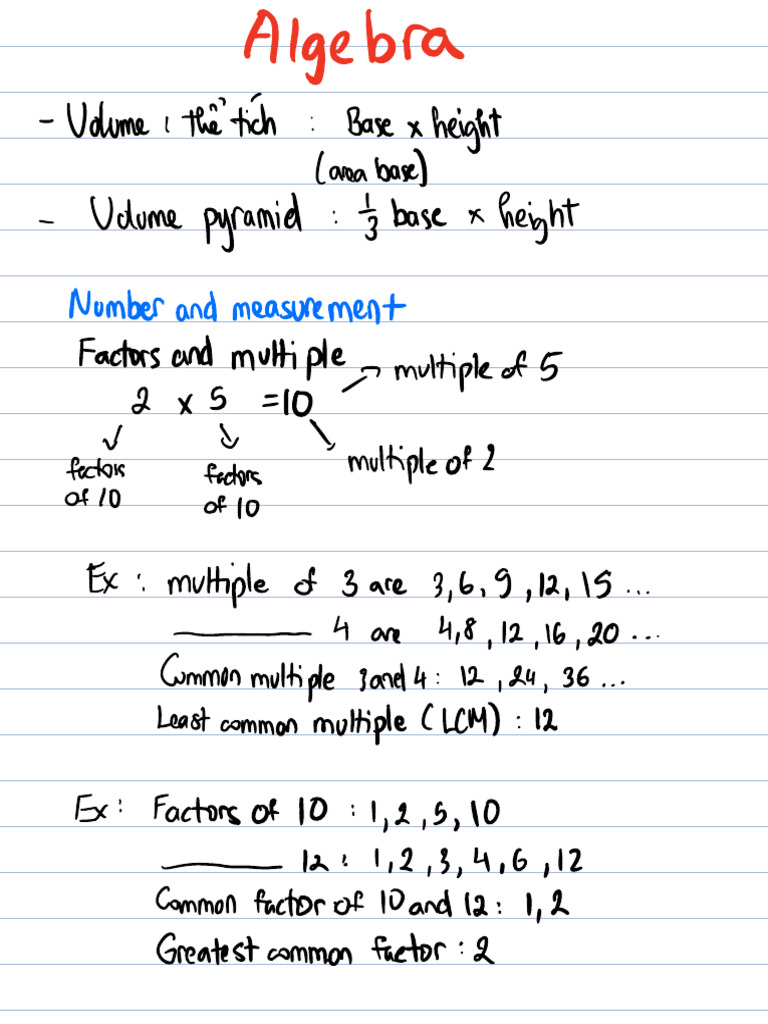 Algebra
- Volume : thể tích : Base x height
(area base)
- Volume pyramid : 1/3 base x height
Number and measurement
Factors and multiple
multiple of 5
2 x 5 = 10
multiple of 2
factors of 10
factors of 10
Ex : multiple of 3 are 3, 6, 9, 12, 15 ...
_______ 4 are 4, 8, 12, 16, 20 ...
Common multiple 3 and 4 : 12, 24, 36 ...
Least common multiple (LCM) : 12
Ex : Factors of 10 : 1, 2, 5, 10
_______ 12 : 1, 2, 3, 4, 6, 12
Common factor of 10 and 12 : 1, 2
Greatest common factor : 2